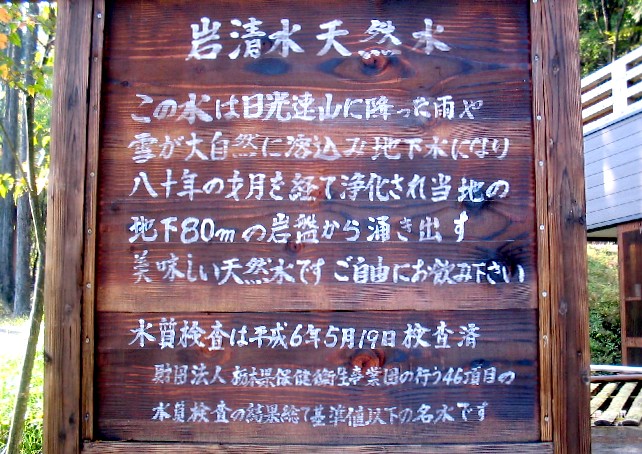 岩清水天然水
この水は日光連山に降った雨や
雪が大自然に溶込み地下水になり
八十年の才月を経て浄化され当地の
地下80mの岩盤から涌き出す
美味しい天然水です ご自由にお飲み下さい
水質検査は平成6年5月19日検査済
財団法人 栃木県保健衛生事業団の行う46項目の
水質検査の結果総て基準値以下の名水です